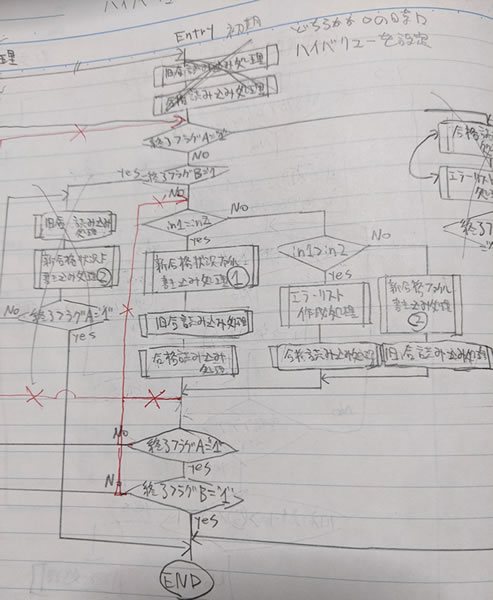 Entry 初期
どちらかが0の時
ハイバリューを設定
旧合読み込み処理
合格読み込み処理
終了フラグA="1"
NO
yes
終了フラグB="1"
No
旧合読み込み
処理
新合格状況ト
書き込み処理②
終了フラグA="1"
No
yes
in1=in2
No
yes
新合格状況ファイル
書き込み処理①
旧合読み込み処理
合格読み込み
処理
in1>in2
No
yes
エラーリスト
作成処理
合格読み込み処理
新合格ファイル
書き込み処理
②
旧合読み込み処理
合格読み込み
処理
エラーリスト
終了フ
No
終了フラグA="1"
yes
N
終了フラグB="1"
yes
END